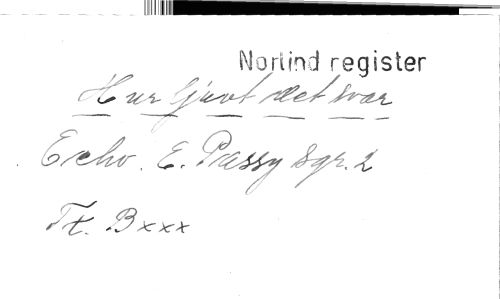 Norlind register
Hur ljuvt det var
Echo. E. Passy Sgr. 2
Tx. Bxxx